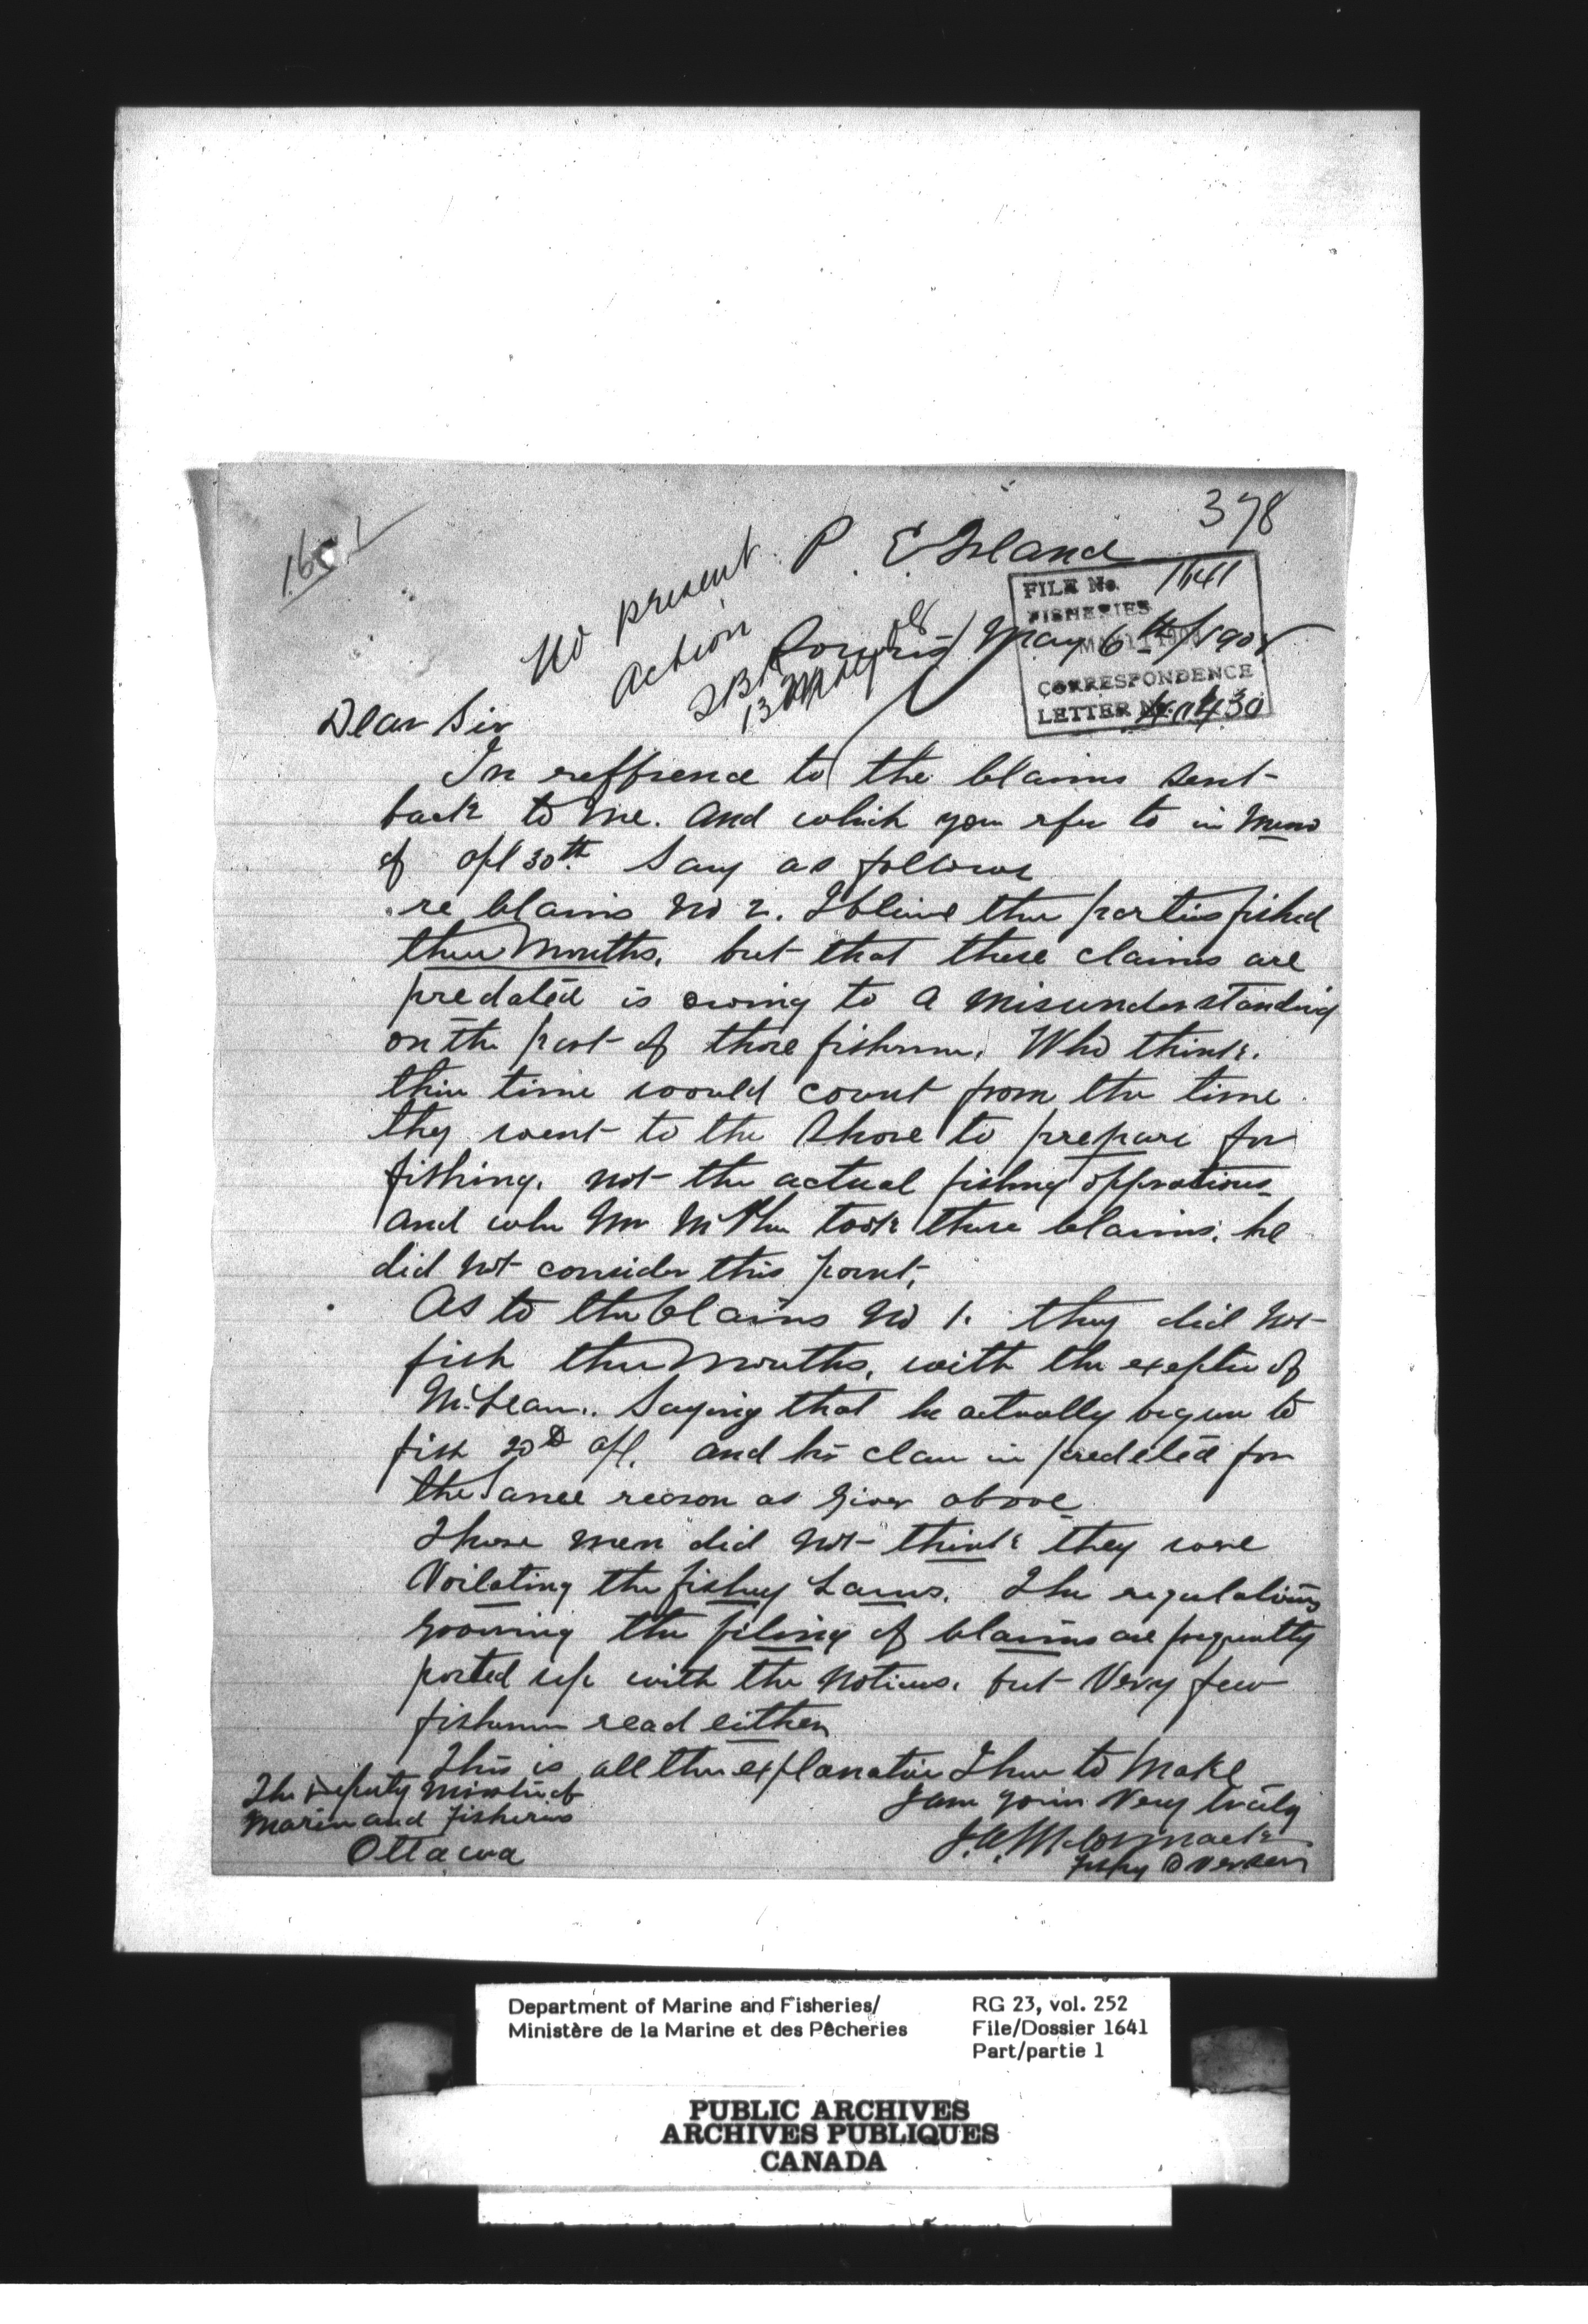 378
P. E Island
No present
action
13 May 08
FILE No. 1641
FISHERIES
CORRESPONDENCE
LETTER No.
Souris May 6th / 1908
Dear Sir
In reffrence to the Claims sent
back to me. and which you refer to in Memo
of apl 30th. Say as follows
re Claims No 2. I blieve the parties fished
three Months. but that these claims are
predated is owing to a misunderstanding
on the part of those fishermen. Who think.
their time would count from the time
they went to the Shore to prepare for
fishing. not the actual fishing opprations
and when Mr McPhee took these Claims. he
did not consider this point.
As to the Claims No 1. they did not
fish three Months. with the exeption of
McLean.. Saying that he actually begun to
fish 20th apl. and his claim is predated for
the Same reason as given above
Those men did not think they were
Voilating the fishery Laws. The regulations
govorning the filing of Claims are frequently
posted up with the Notices. but Very few
fishermen read either
This is all the explanation I have to Make
I am yours Very truly
J. A. McCormack
Fishy Overseer
The Deputy Minister of
Marine and Fisheries
Ottawa
Department of Marine and Fisheries/
Ministère de la Marine et des Pêcheries
RG 23, vol. 252
File/Dossier 1641
Part/partie 1
PUBLIC ARCHIVES
ARCHIVES PUBLIQUES
CANADA